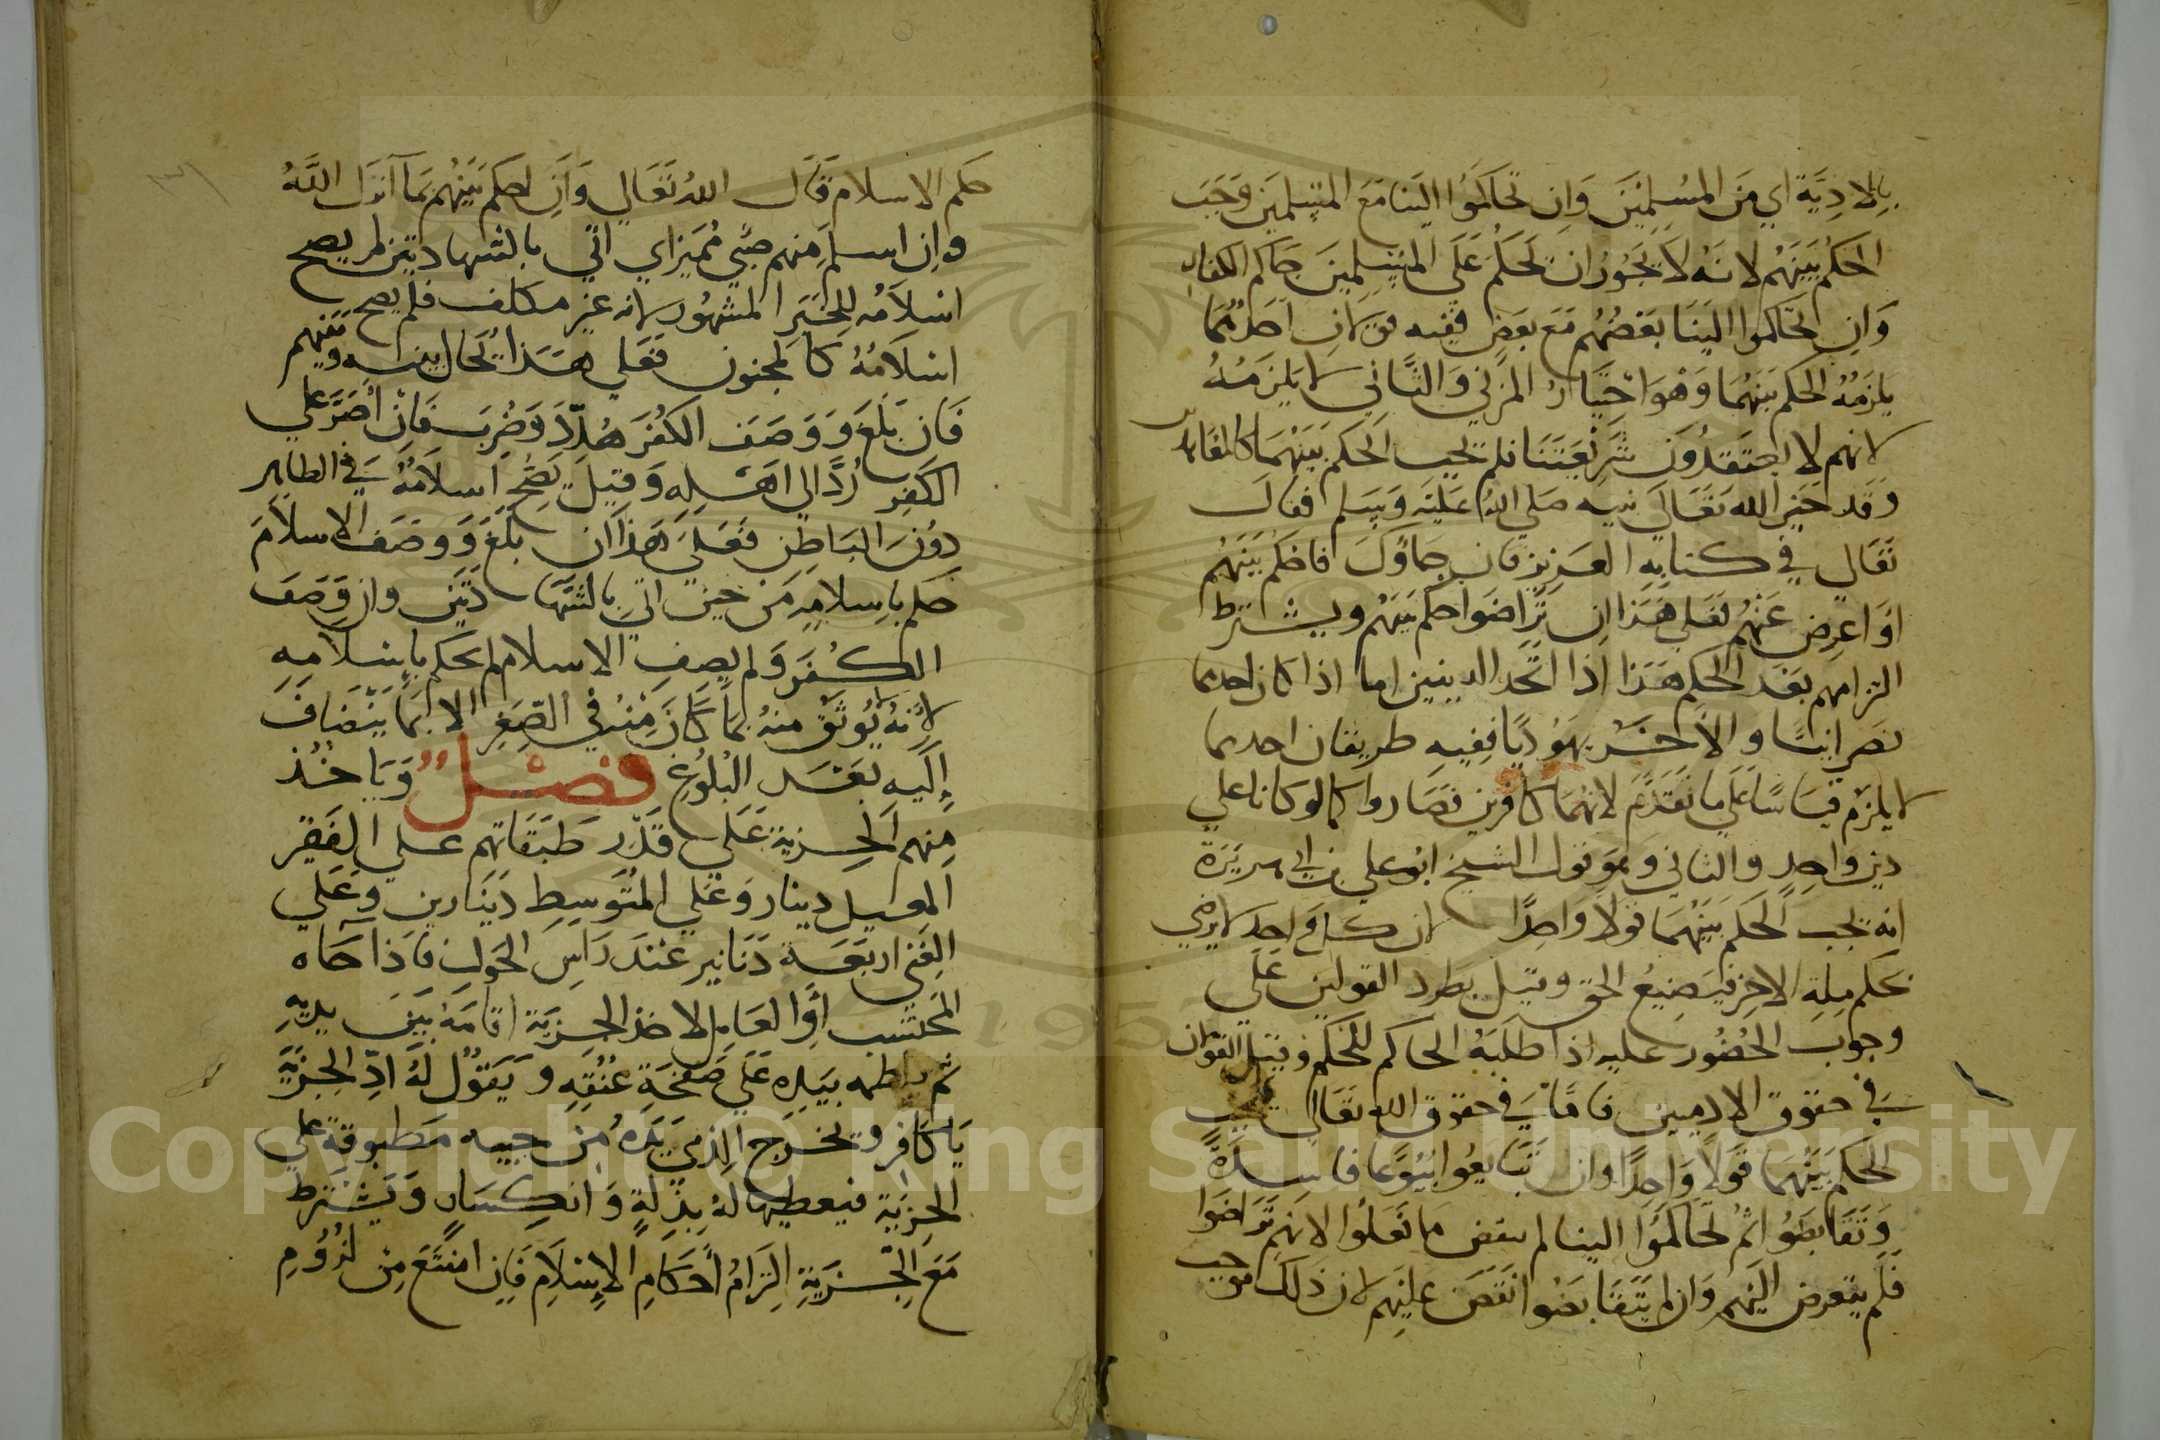 بالاذية اي من المسلمين وان تحاكموا الينا مع المسلمين وجب
الحكم بينهم لانه لا يجوز ان يحكم على المسلمين حاكم الكفار
وان تحاكموا الينا بعضهم مع بعض ففيه قولان احدهما
يلزمه الحكم بينهما وهو اختيار المزني والثاني لا يلزمه
لانهم لا يعتقدون شريعتنا فلم يجب الحكم بينهما
وقد خير الله تعالى نبيه صلي الله عليه وسلم فقال
تعالى في كتابه العزيز فان جاؤك فاحكم بينهم
او اعرض عنهم فعلي هذا ان تراضوا حكم بينهم ويشترط
التزامهم بعد الحكم هذا اذا اتحد الدينين اما اذا كان احدهما
نصرانيا والاخر يهوديا ففيه طريقان احدهما
لا يلزم قياسا على ما تقدم لانهما كافرين فصاروا كما لو كانا علي
دين واحد والثاني وهو قول الشيخ ابو علي بن ابي هريرة
انه يجب الحكم بينهما قولا واحدا لان كل واحد لا يرضي
بحكم ملة الاخر فيضيع الحق وقيل يطرد القولين على
وجوب الحضور عليه اذا طلبه الحاكم للحكم وقيل القولان
في حقوق الادميين فاما في حقوق الله تعالى يجب
الحكم بينهما قولا واحدا وان تبايعوا بيوعا فاسدة
وتقابضوا ثم تحاكموا الينا لم ينقض ما فعلوا لانهم تراضوا
فلم يتعرض اليهم وان لم يتقابضوا انتقض عليهم لان ذلك موجب
حكم الاسلام قال الله تعالي وان احكم بينهم بما انزل الله
وان اسلم منهم صبي مميز اي اتي بالشهادتين لم يصح
اسلامه للخبر المشهور لانه غير مكلف فلم يصح
اسلامه كالمجنون فعلي هذا يحال بينه وبينهم
فان بلغ ووصف الكفر هدد وضرب فان اصر علي
الكفر رد الي اهله وقيل يصح اسلامه في الظاهر
دون الباطن فعلى هذا ان بلغ ووصف الاسلام
حكم باسلامه من حين اتي بالشهادتين وان وصف
الكفر ولم يصف الاسلام لم يحكم باسلامه
لانه لا يوثق منه بما كان منه في الصغر الا بما ينضاف
إليه بعد البلوغ فصل وياخذ
منهم الجزية على قدر طبقاتهم علي الفقير
المعيل دينار وعلي المتوسط دينارين وعلي
الغني اربعة دنانير عند راس الحول فاذا جاه
المحتسب او العامل لاخذ الجزية اقامه بين يديه
ثم يلطمه بيده علي صفحة عنقه ويقول له ادّ الجزية
يا كافر ويخرج الذمي يده من جيبه مطبوقة علي
الجزية فيعطيها له بذلة وانكسار ويشترط
مع الجزية التزام أحكام الإسلام فإن امتنع من لزوم